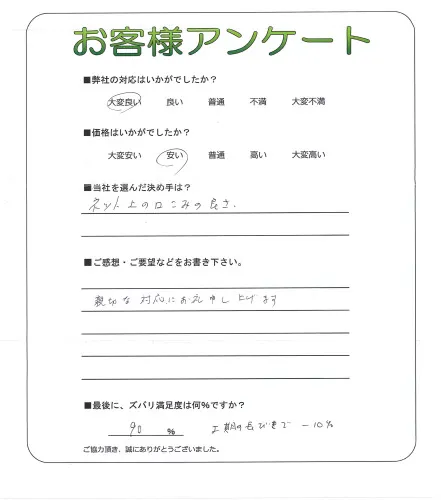 お客様アンケート
■弊社の対応はいかがでしたか？
大変良い 良い 普通 不満 大変不満
■価格はいかがでしたか？
大変安い 安い 普通 高い 大変高い
■当社を選んだ決め手は？
ネット上の口こみの良さ.
■ご感想・ご要望などをお書き下さい。
親切な対応にお礼申し上げます
■最後に、ズバリ満足度は何%ですか？
90 % 工期の延びまで －10%
ご協力頂き、誠にありがとうございました。